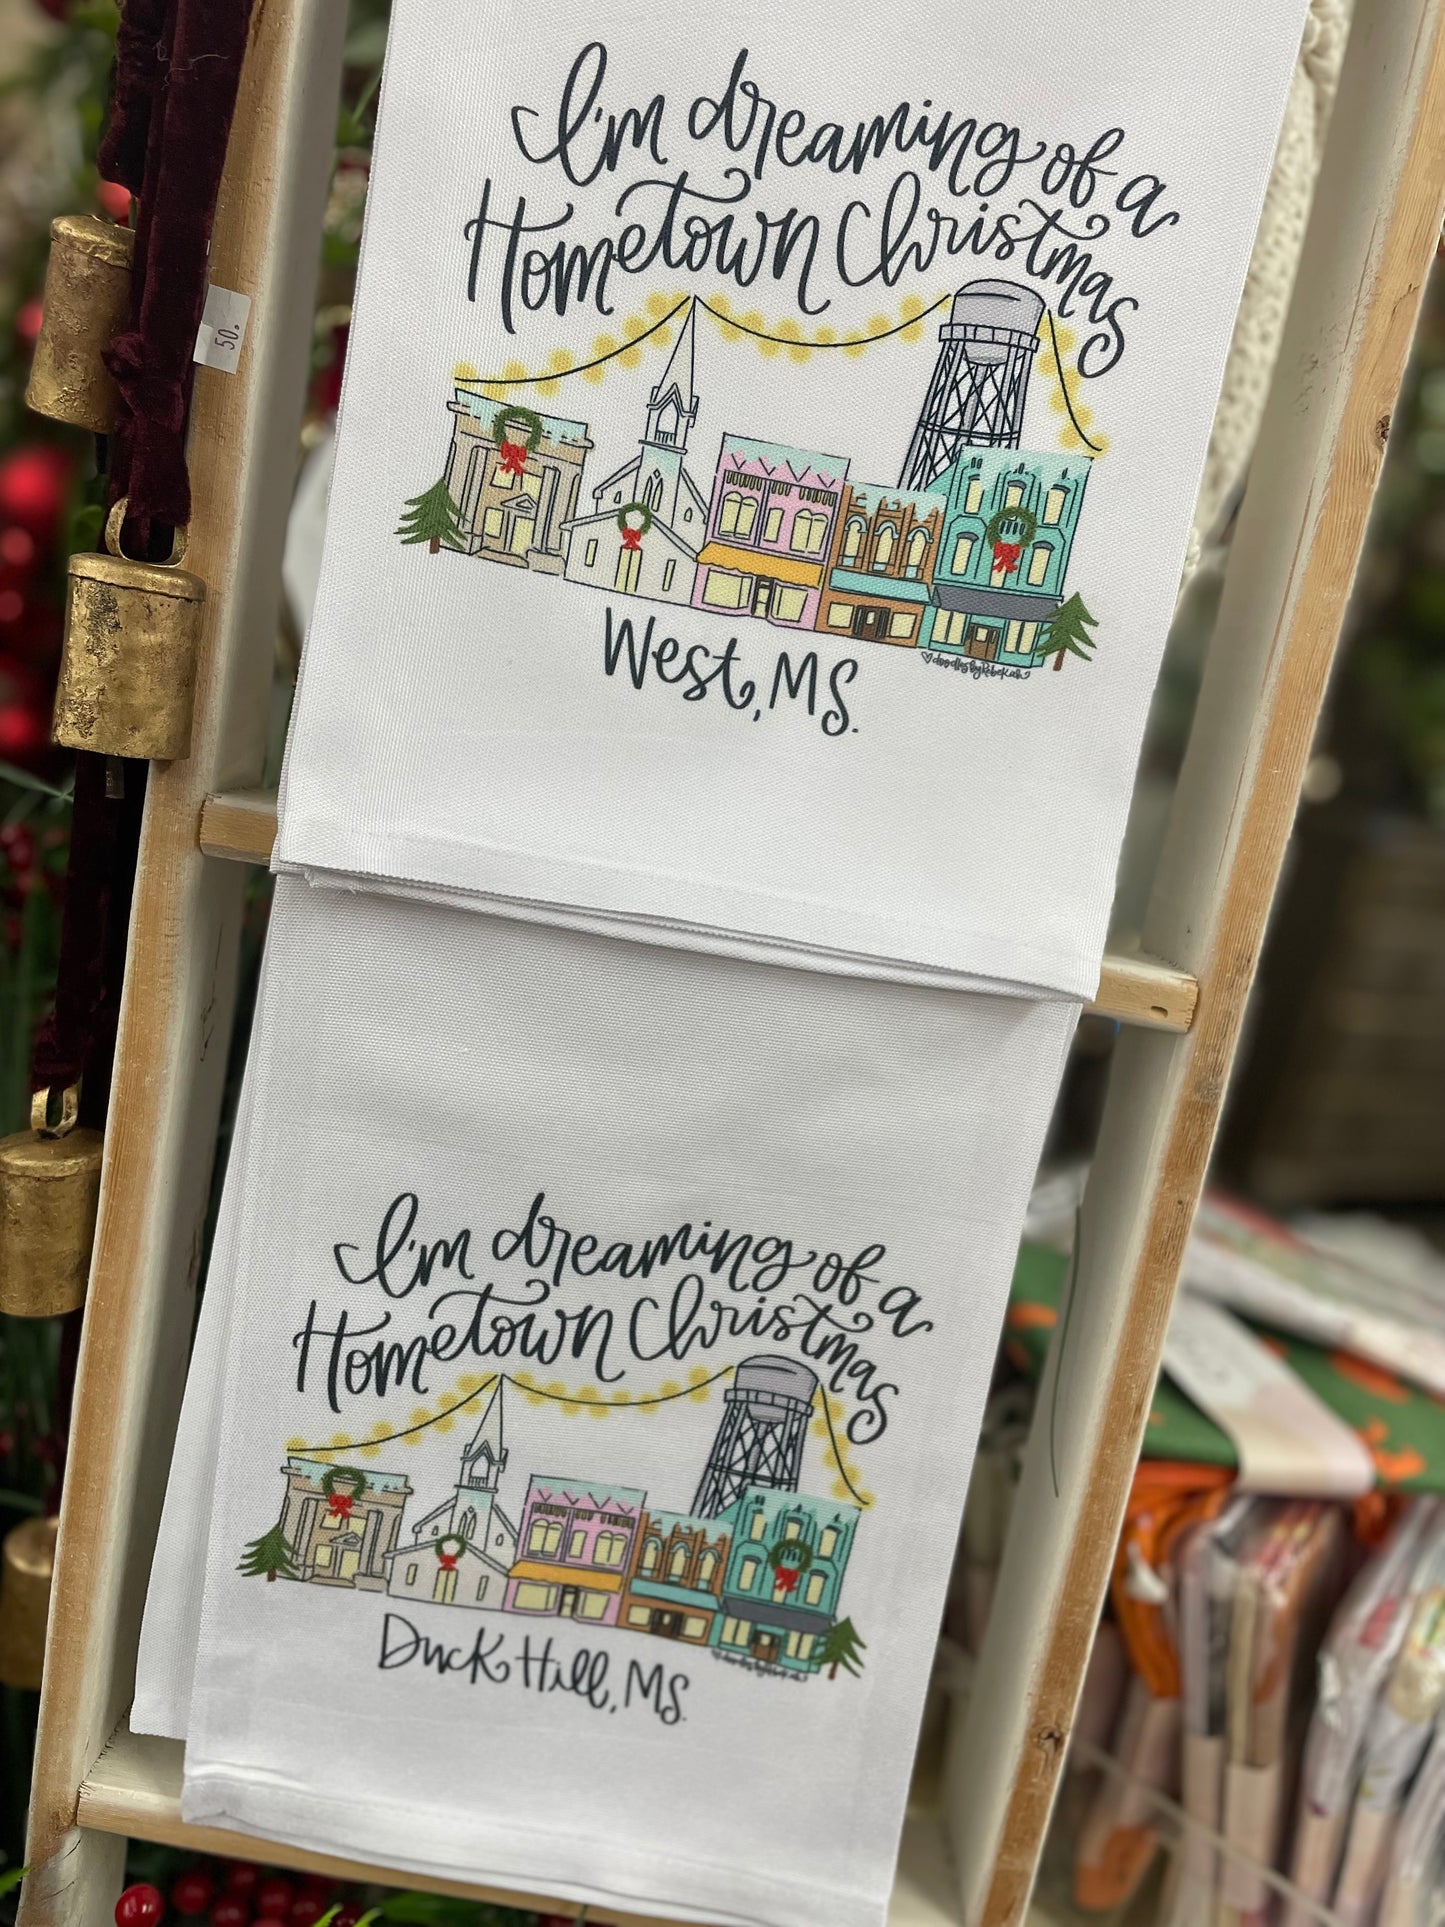 50.
I'm dreaming of a
Hometown Christmas
doodlesbyRebekah
West, MS.
I'm dreaming of a
Hometown Christmas
Duck Hill, MS.